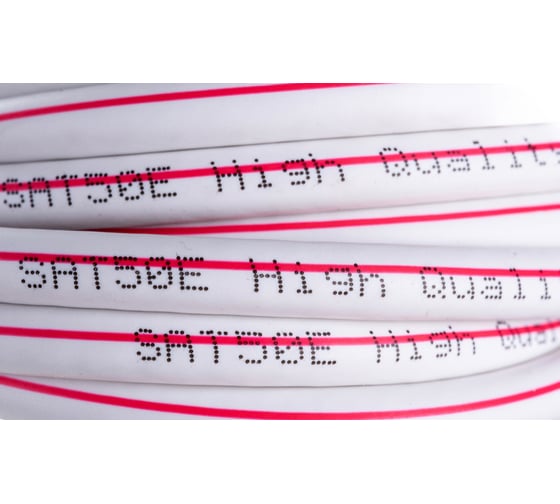 SAT50E High Qualit
SAT50E High Quali
SAT50E High Qual